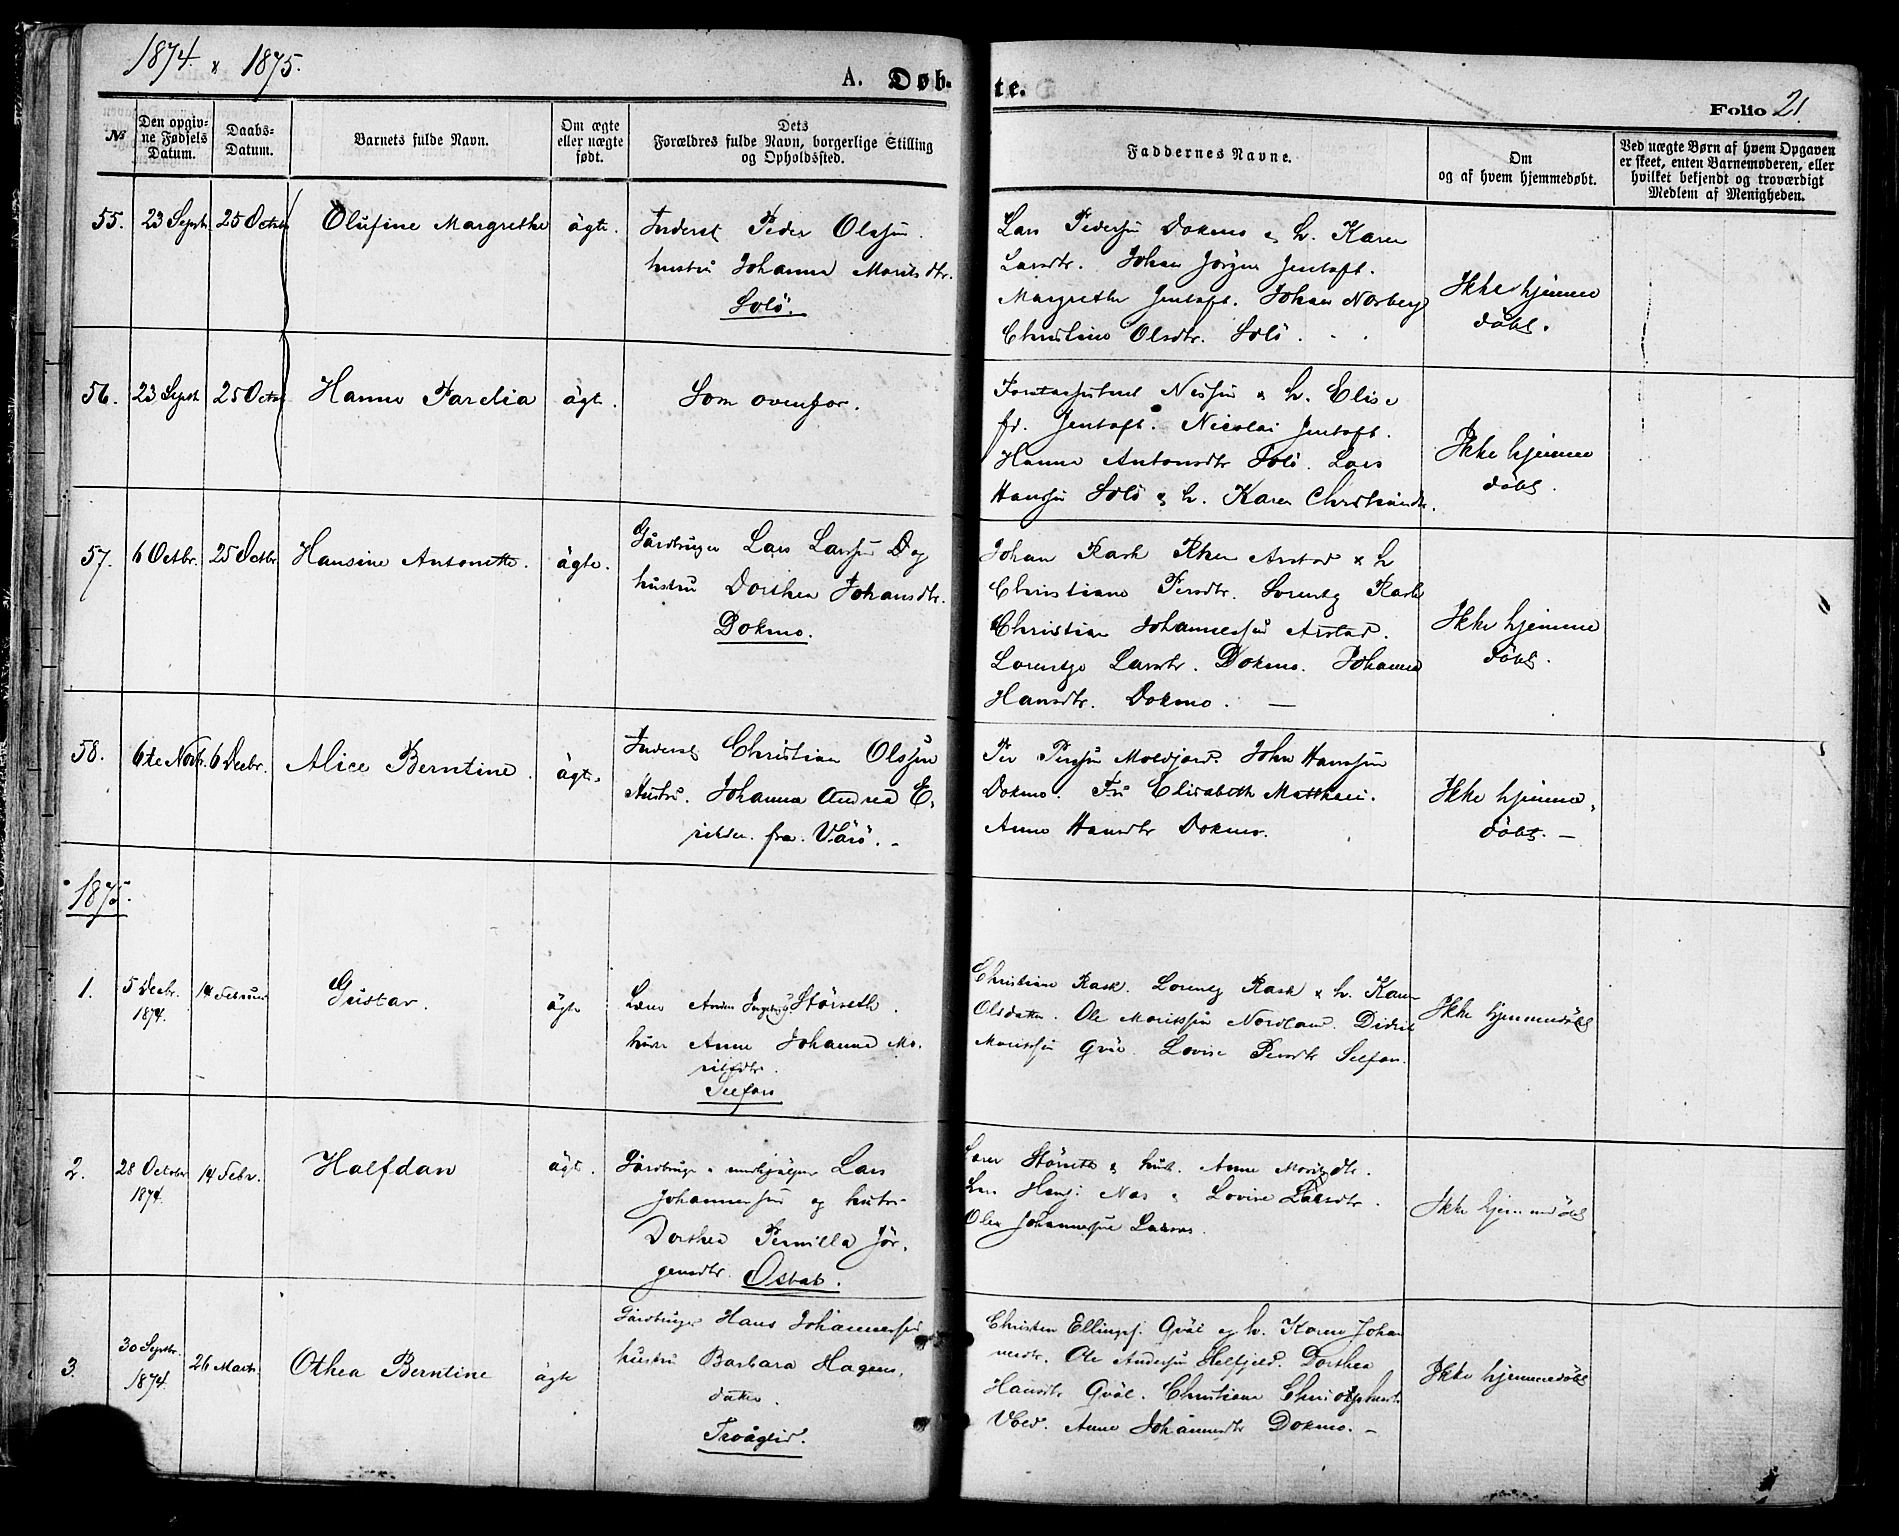 1874 & 1875.
A. Døb-te.
Folio 21.
№
Den opgiv-
ne Fødsels
Datum.
Daabs-
Datum.
Barnets fulde Navn.
Om ægte
eller uægte
født.
Dets
Forældres fulde Navn, borgerlige Stilling
og Opholdssted.
Faddernes Navne.
Om
og af hvem hjemmedøbt.
Ved uægte Børn af hvem Opgaven
er skeet, enten Barnemoderen, eller
hvilket bekjendt og troværdigt
Medlem af Menigheden.
55. 23 Septb 25 Octbr Olufine Margrethe ägte.
Inderst Peder Olssen.
hustru Johanna Moritsdtr.
Solö.
Lars Pedersen Dokmo & h. Karen
Larsdtr. Johan Jörgen Jentoft.
Margrethe Jentoft. Johan Norberg
Christine Olsdtr. Solö.
Ikke hjemme
döbt.
56. 23 Septb 25 Octbr Hanna Parelia ägte.
Som ovenfor.
Nissen & h. Elise
fd. Jentoft. Nicolai Jentoft.
Hanna Antonsdtr Solö. Lars
Hanssen Solö & h. Karen
Ikke hjemme
döbt.
57. 6 Octbr. 25 Octbr Hansine Antonette. ägte.
Gårdbruger Lars Larssen og
hustru Dorthea Johansdtr.
Dokmo.
Johan Rask Arstad & h
Christiane Persdtr. Lorentz Rask
Christian Johannessen Arstad.
Larsdtr. Dokmo. Johanna
Hansdtr. Dokmo. —
Ikke hjemme
döbt.
58. 6te Novb. 6 Decbr. Alice Berntine. ägte.
Inderst Christian Olssen
Hustru. Johanna Andrea E.
fra Värö. -
Per Perssen Moldjord. John Hanssen
Dokmo. Fru Elisabeth Matthæi.
Anne Hansdtr Dokmo.
Ikke hjemme-
döbt. —
1875.
1. 5 Decbr.
1874. 14 Februar Gustav. ägte
Lærer Störseth.
hustr Anne Johanna Mo-
ritsdtr.
Selfors
Christiane Rask. Lorentz Rask & h. Karen
Olsdatter. Ole Moritssen Nordland. Didrik
Moritssen Qväl. Lovise Persdtr Selfors.
Ikke hjemmedöbt
2. 28 October
1874. 14 Febr. Halfdan ägte.
Gårdbruger & Lars
Johannessen og hustru
Dorthea Pernilla Jör-
gensdtr. Osbak.
Lærer Störseth & hust. Anne Moritsdtr.
Lars Hansen Nas & Lovise Larsdtr.
Johannessen
Ikke hjemmedöbt
3. 30 Septbr.
1874. 26 Marts. Othea Berntine ägte
Gårdbruger Hans Johannessen
hustru Barbara Hagens-
datter.
Troåglid.
Christen Ellingsf. Qväl og h. Karen Johan-
nesdtr. Ole Anderssen Selfjeld. Dorthea
Hansdtr Qväl. Christiane
Anne Johannesdtr Dokmo. —
Ikke hjemmedöbt